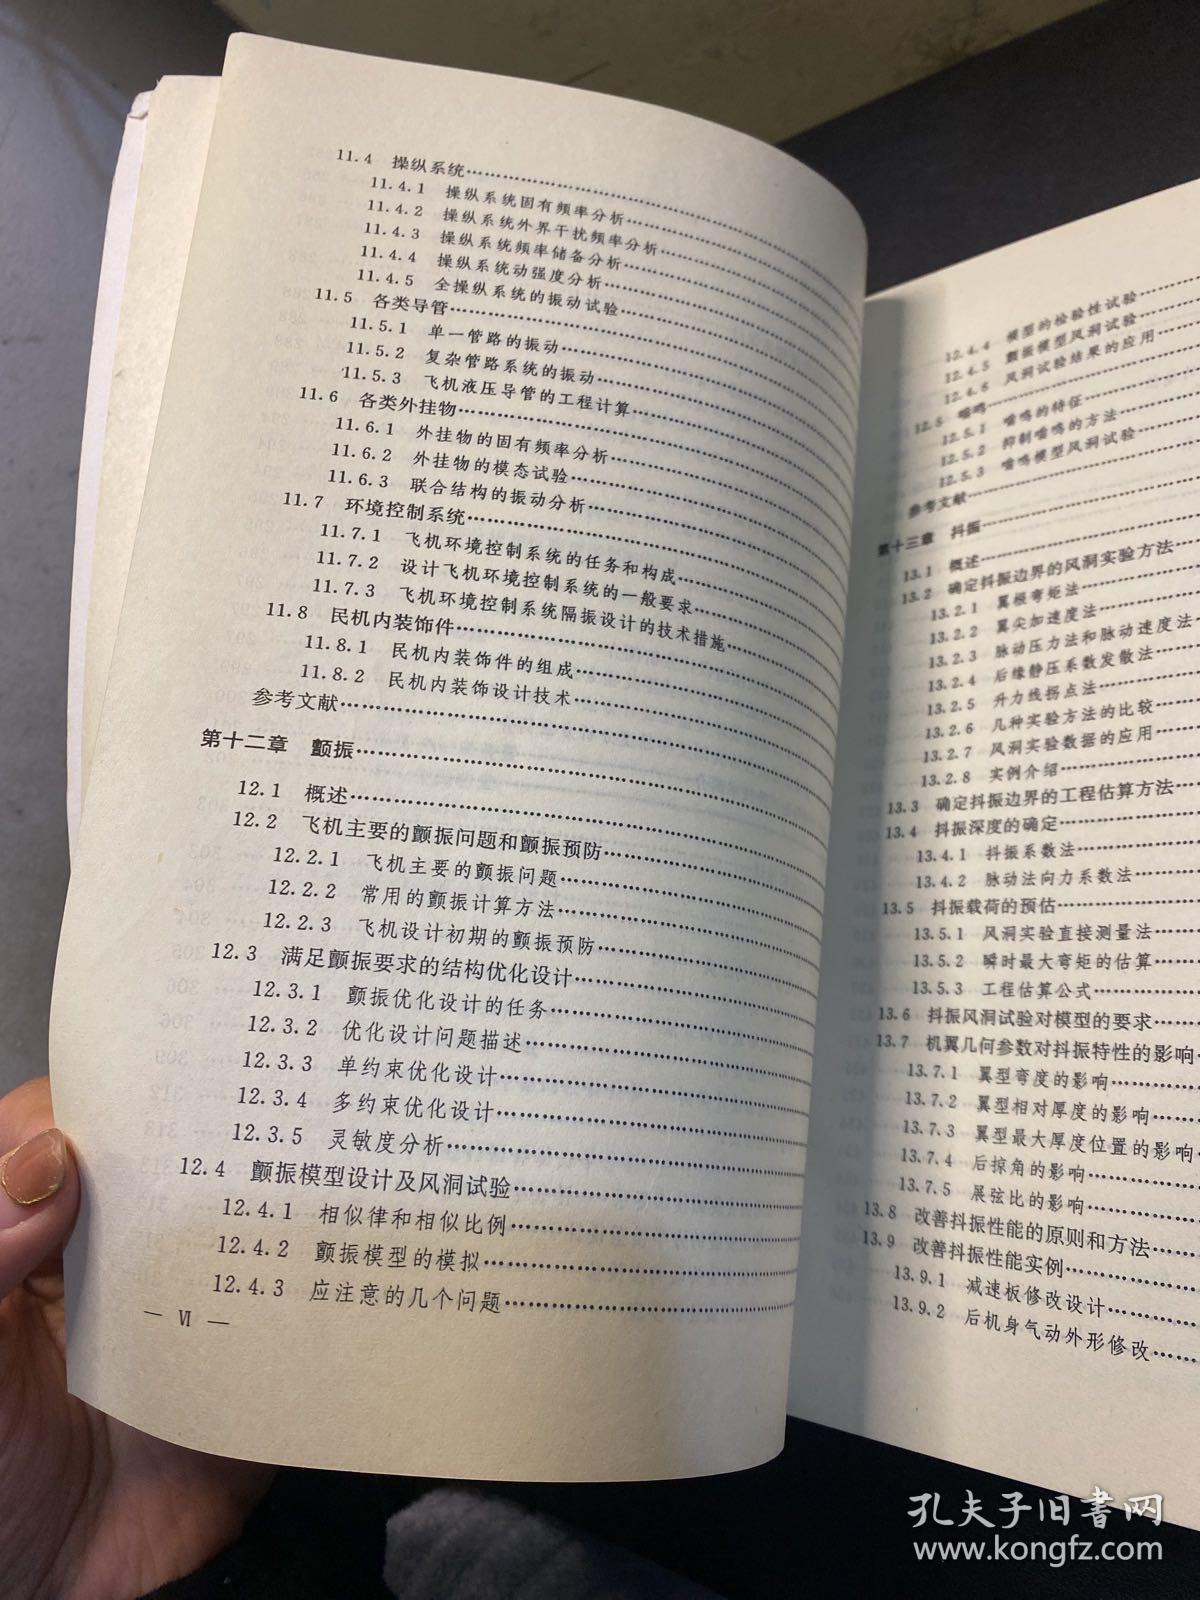 11.4 操纵系统
11.4.1 操纵系统固有频率分析
11.4.2 操纵系统外界干扰频率分析
11.4.3 操纵系统频率储备分析
11.4.4 操纵系统动强度分析
11.4.5 全操纵系统的振动试验
11.5 各类导管
11.5.1 单一管路的振动
11.5.2 复杂管路系统的振动
11.5.3 飞机液压导管的工程计算
11.6 各类外挂物
11.6.1 外挂物的固有频率分析
11.6.2 外挂物的模态试验
11.6.3 联合结构的振动分析
11.7 环境控制系统
11.7.1 飞机环境控制系统的任务和构成
11.7.2 设计飞机环境控制系统的一般要求
11.7.3 飞机环境控制系统隔振设计的技术措施
11.8 民机内装饰件
11.8.1 民机内装饰件的组成
11.8.2 民机内装饰设计技术
参考文献
第十二章 颤振
12.1 概述
12.2 飞机主要的颤振问题和颤振预防
12.2.1 飞机主要的颤振问题
12.2.2 常用的颤振计算方法
12.2.3 飞机设计初期的颤振预防
12.3 满足颤振要求的结构优化设计
12.3.1 颤振优化设计的任务
12.3.2 优化设计问题描述
12.3.3 单约束优化设计
12.3.4 多约束优化设计
12.3.5 灵敏度分析
12.4 颤振模型设计及风洞试验
12.4.1 相似律和相似比例
12.4.2 颤振模型的模拟
12.4.3 应注意的几个问题
— Ⅵ —
12.4.4 模型的检验性试验
12.4.5 颤振模型风洞试验
12.4.6 风洞试验结果的应用
12.5 嗡鸣
12.5.1 嗡鸣的特征
12.5.2 抑制嗡鸣的方法
12.5.3 嗡鸣模型风洞试验
参考文献
第十三章 抖振
13.1 概述
13.2 确定抖振边界的风洞实验方法
13.2.1 翼根弯矩法
13.2.2 翼尖加速度法
13.2.3 脉动压力法和脉动速度法
13.2.4 后缘静压系数发散法
13.2.5 升力线拐点法
13.2.6 几种实验方法的比较
13.2.7 风洞实验数据的应用
13.2.8 实例介绍
13.3 确定抖振边界的工程估算方法
13.4 抖振深度的确定
13.4.1 抖振系数法
13.4.2 脉动法向力系数法
13.5 抖振载荷的预估
13.5.1 风洞实验直接测量法
13.5.2 瞬时最大弯矩的估算
13.5.3 工程估算公式
13.6 抖振风洞试验对模型的要求
13.7 机翼几何参数对抖振特性的影响
13.7.1 翼型弯度的影响
13.7.2 翼型相对厚度的影响
13.7.3 翼型最大厚度位置的影响
13.7.4 后掠角的影响
13.7.5 展弦比的影响
13.8 改善抖振性能的原则和方法
13.9 改善抖振性能实例
13.9.1 减速板修改设计
13.9.2 后机身气动外形修改
孔夫子旧书网
www.kongfz.com